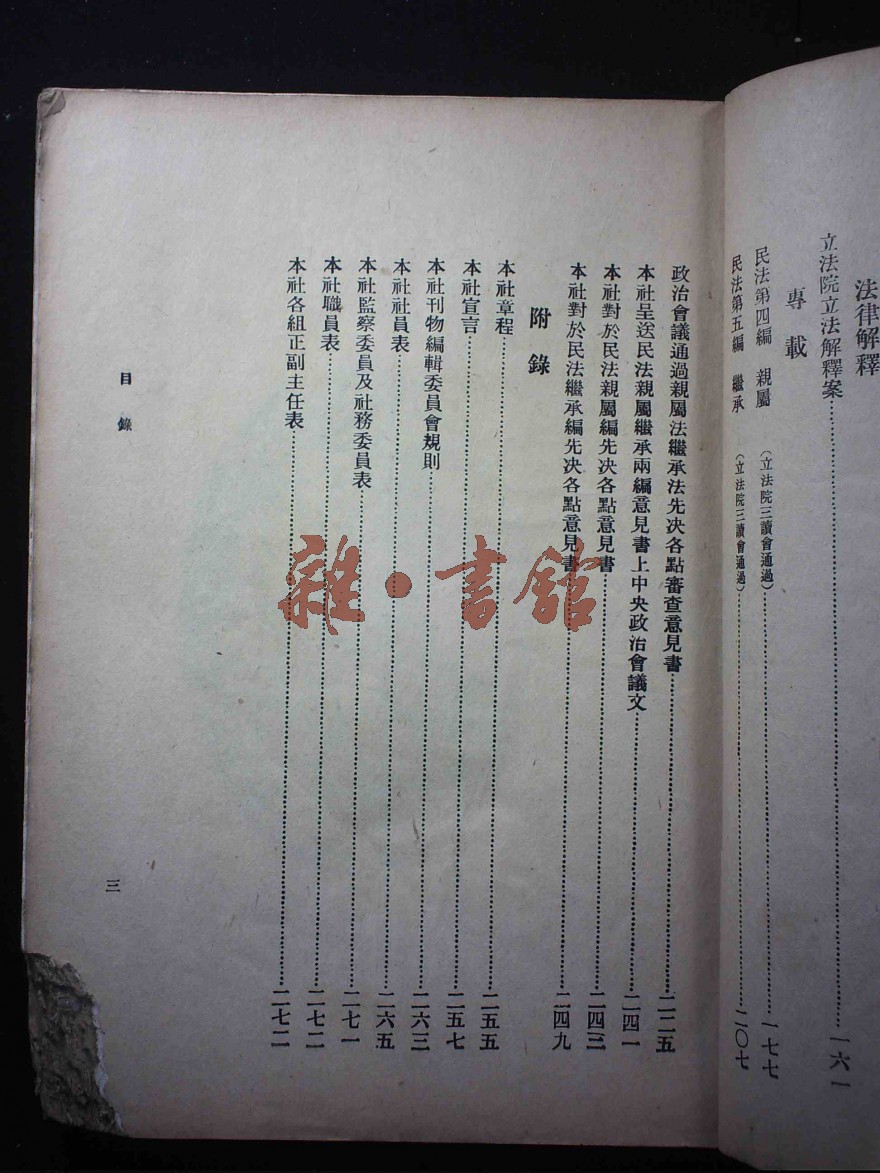 法律解釋
立法院立法解釋案……一六一
專載
民法第四編　親屬　（立法院三讀會通過）……一七七
民法第五編　繼承　（立法院三讀會通過）……二〇七
政治會議通過親屬法繼承法先决各點審查意見書……二二五
本社呈送民法親屬繼承兩編意見書上中央政治會議文……二四一
本社對於民法親屬編先决各點意見書……二四三
本社對於民法繼承編先决各點意見書……二四九
附錄
本社章程……二五五
本社宣言……二五七
本社刊物編輯委員會規則……二六三
本社社員表……二六五
本社監察委員及社務委員表……二七一
本社職員表……二七二
本社各組正副主任表……二七二
目錄
三
雜·書館